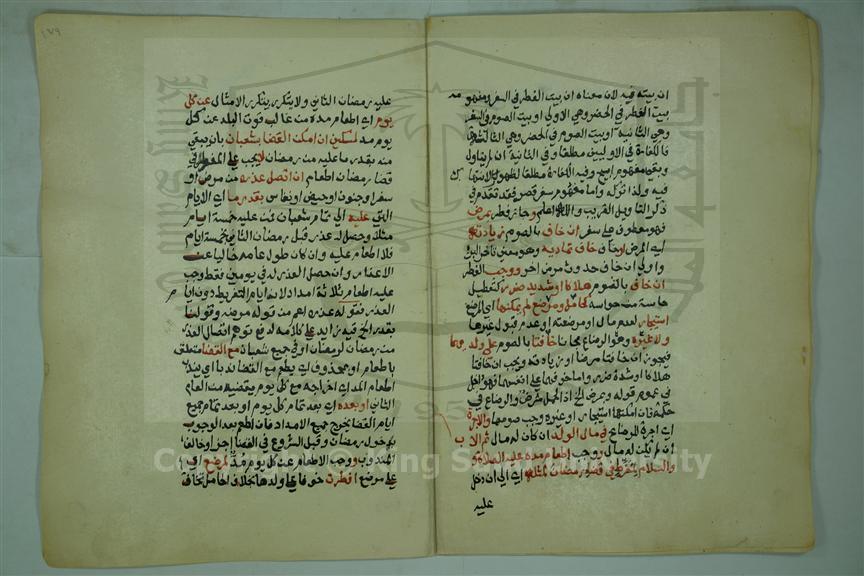 ان بيته فيه لان معناه ان بيت الفطر في السفر ومفهومه
بيت الفطر في الحضر وهي الاولى او بيت الصوم في السفر
وهي الثانية او بيت الصوم في الحضر وهي الثالثة
فالكفارة في الاوليين مطلقا وفي الثانية ان لم يتاول
وبقي مفهوم
فيه ولذا تركه واما مفهوم سفر قصر فقد تقدم في
ذكر التاويل القريب والله اعلم وجاز فطر بمرض
فهو معطوف على سفر ان خاف بالصوم زيادته
اي المرض او خاف تماديه وهو معنى تاخر البرء
واولى ان خاف حدوث مرض اخر ووجب الفطر
ان خاف بالصوم هلاكا او شديد ضرر كتعطيل
حاسة من حواسه كحامل ومرضع لم يمكنها اي المرضع
استيجار لعدم مال او مرضعة او عدم قبول غيرها
ولا غيره وهو الرضاع مجانا خافتا بالصوم على ولديهما
فيجوز ان خافتا مرضا او زيادته ويجب ان خافتا
هلاكا او شدة ضرر واما خوفهما على انفسهما فهو داخل
في عموم قوله وبمرض الخ اذ الحمل مرض والرضاع في
حكمه فان امكنها استيجار او غيره وجب صومها والاجرة
اي اجرة الرضاع في مال الولد ان كان له مال ثم الاب
ان لم يكن له مال ووجب اطعام مده عليه الصلاة
والسلام لمفرط في قضاء رمضان لمثله اي الى ان دخل
عليه
١٧٩
عليه رمضان الثاني ولا يتكرر بتكرر الامثال عن كل
يوم اي اطعام مدة من غالب قوت البلد عن كل
يوم مد لمسكين ان امكن القضا بشعبان بان بقي
منه بقدر ما عليه من رمضان لا يجب على المفطر في
قضا رمضان اطعام ان اتصل عذره من مرض او
سفر او جنون او حيض او نفاس بقدر ما اي الايام
التي عليه الى تمام شعبان فمن عليه خمسة ايام
مثلا وحصل له عذر قبل رمضان الثاني بخمسة ايام
فلا اطعام عليه وان كان طول عامه خاليا عن
الاعذار وان حصل العذر له في يومين فقط وجب
عليه اطعام ثلاثة امداد لانها ايام التفريط دون ايام
العذر فقوله عذره اعم من قوله مرضه وقولنا
بقدر الخ قيد زايد على كلامه لدفع توهم اتصال العذر
من رمضان لرمضان او في جميع شعبان مع القضا متعلق
باطعام او بمحذوف اي يطعم مع القضاء
اطعام المد اي اخراجه مع كل يوم يقضيه من العام
الثاني او بعده اي بعد تمام كل يوم او بعد تمام جميع
ايام القضا يخرج جميع الامداد فان اطعم بعد الوجوب
بدخول رمضان وقبل الشروع في القضا اجزا وخالف
المندوب ووجب الاطعام عن كل يوم مد لمرضع اي
على مرضع افطرت خوفا على ولدها بخلاف الحامل تخاف
Copyright © King Saud University
1957